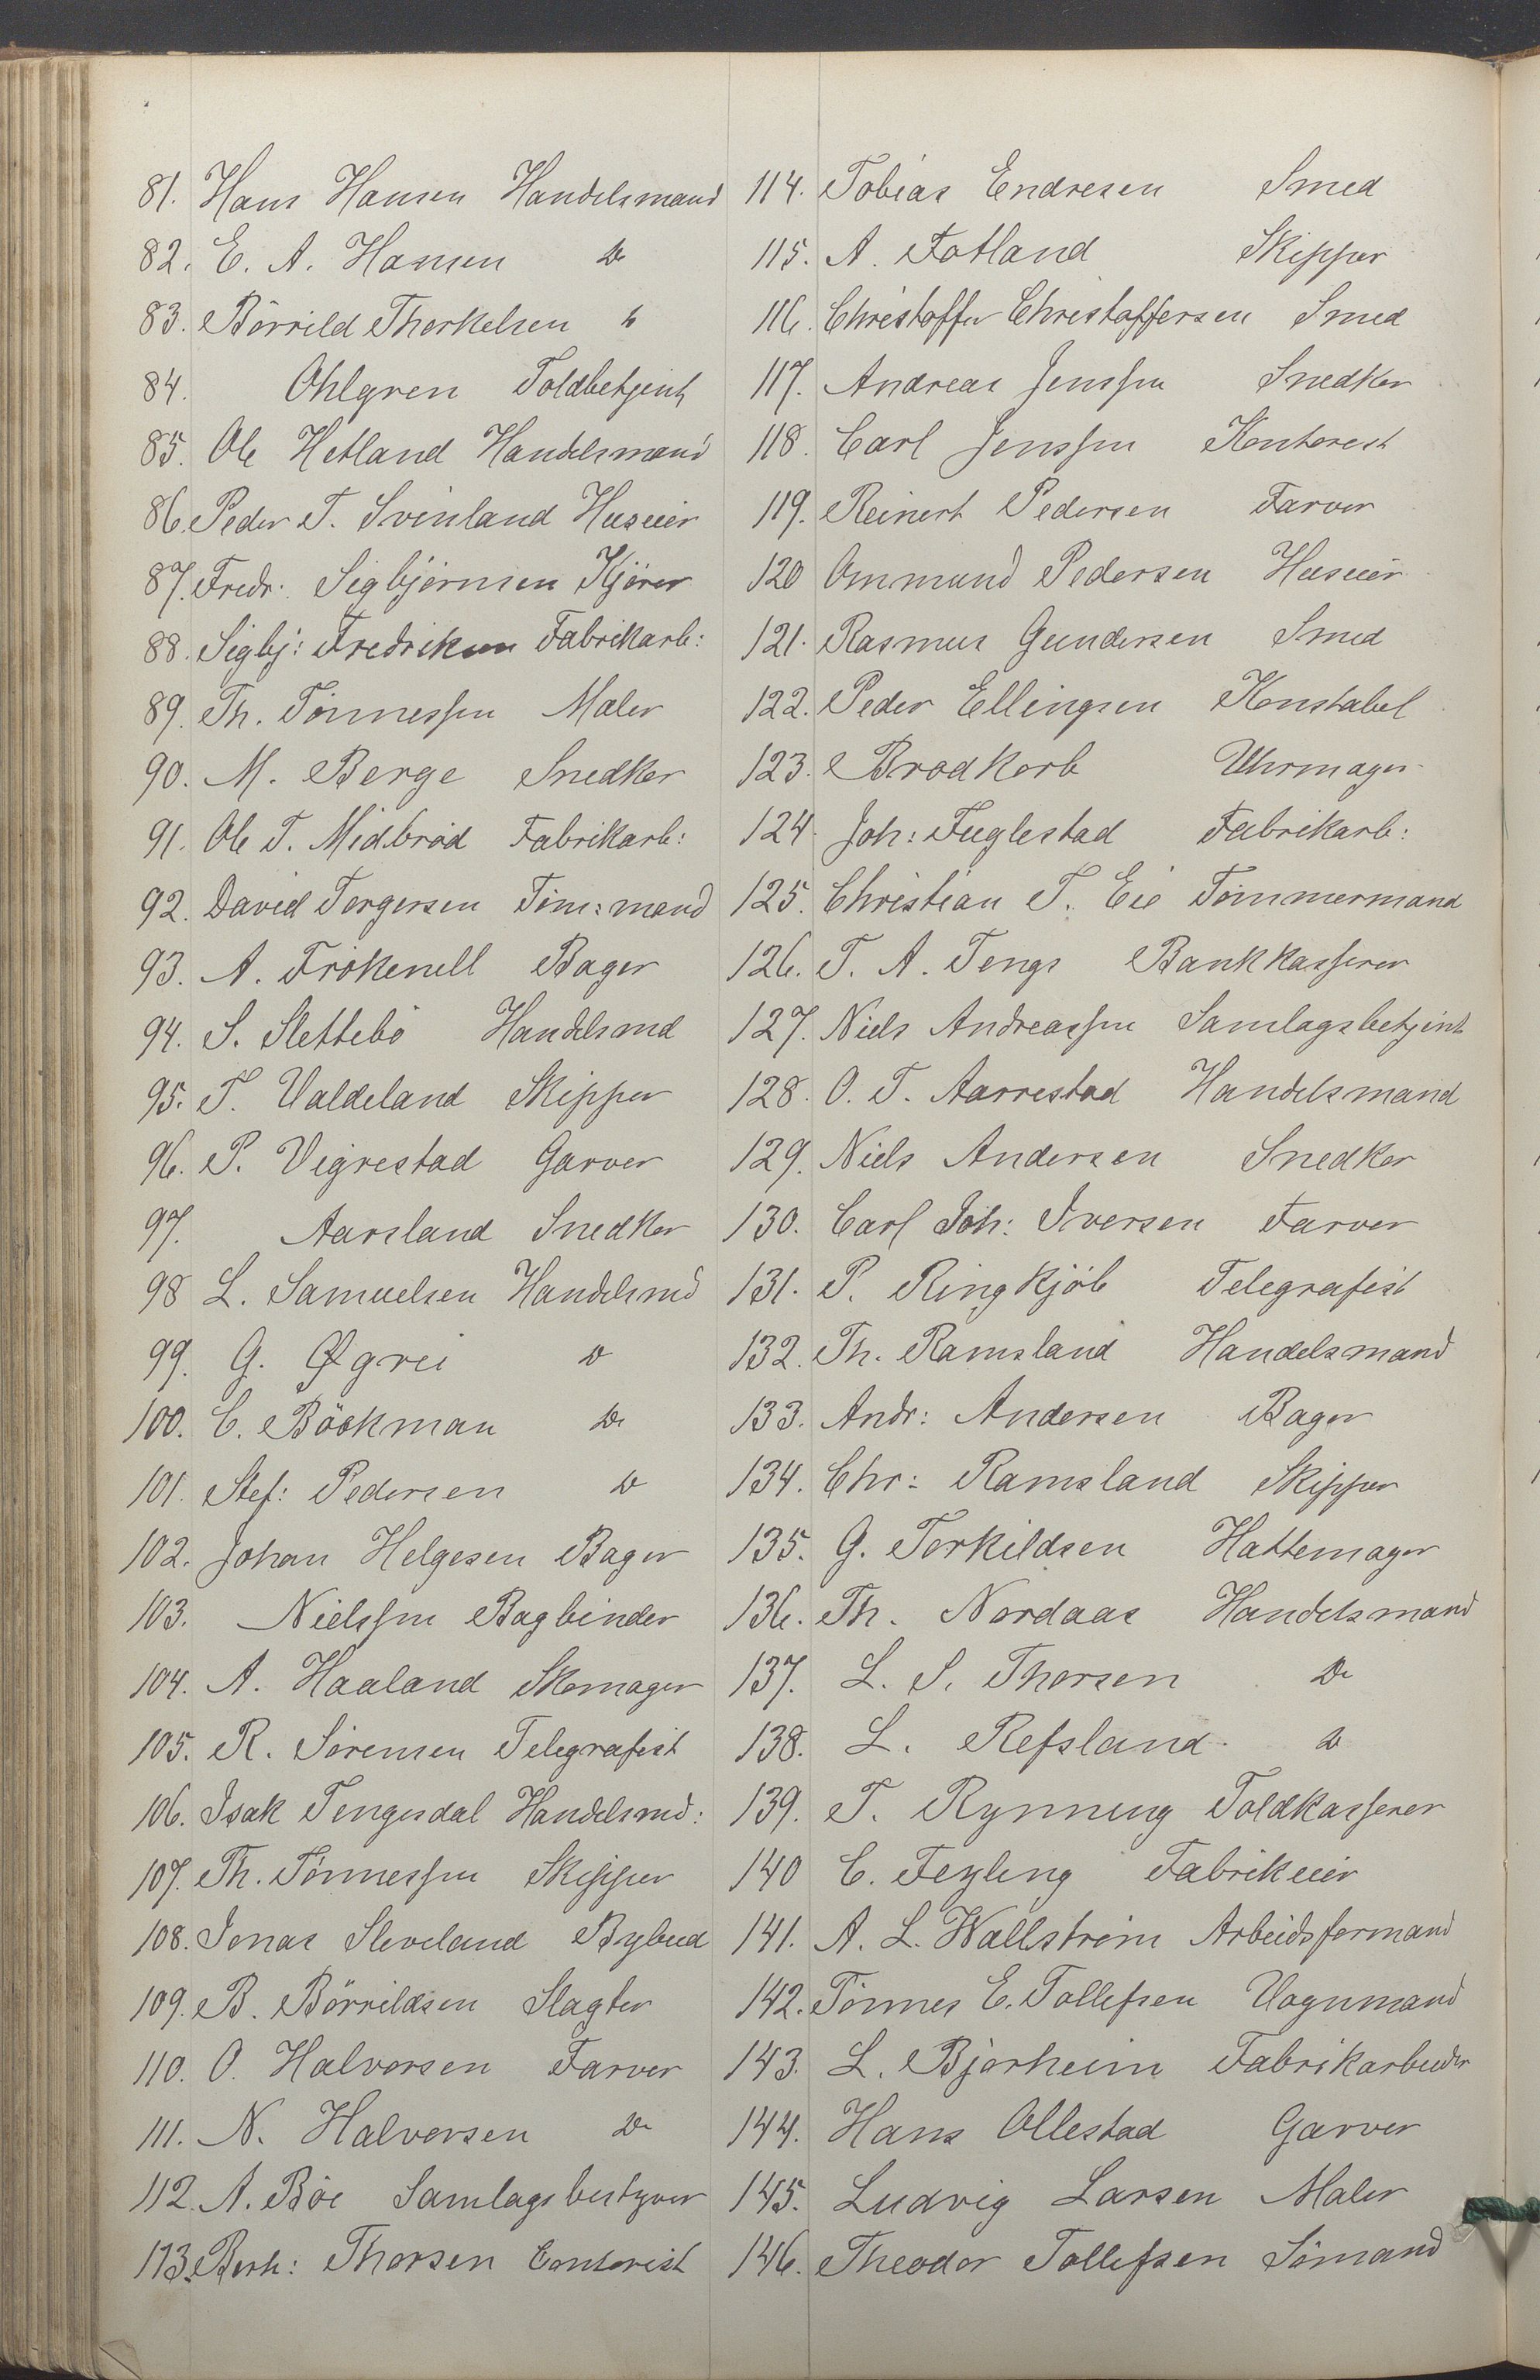 81. Hans Hansen Handelsmand
82. E. A. Hansen Do
83. Börrild Thorkelsen Do
84. Ohlgren Toldbetjent
85. Ole Hetland Handelsmand
86. Peder T. Svinland Huseier
87. Fredr. Sigbjörnsen Kjörer
88. Sigbj: Fredriksen Fabrikarb:
89. Th. Tönnessen Maler
90. M. Berge Snedker
91. Ole T. Midbröd Fabrikarb:
92. David Torgersen Töm:mand
93. A. Frökenell Bager
94. S. Slettebö Handelsmd
95. T. Valdeland Skipper
96. P. Vigrestad Garver
97. Aarsland Snedker
98 L. Samuelsen Handelsmd
99. G. Øgrei Do
100. C. Böckman Do
101. Stef: Pedersen Do
102. Johan Helgesen Bager
103. Nielssen Bogbinder
104. A. Haaland Skomager
105. R. Sörensen Telegrafist
106. Isak Tengesdal Handelsmd:
107. Th. Tönnessen Skipper
108. Jonas Sleveland Bybud
109. B. Börrildsen Slagter
110. O. Halvorsen Farver
111. N. Halvorsen Do
112. A. Böe Samlagsbestyrer
113. Berh: Thorsen Contorist
114. Tobias Endresen Smed
115. A. Fotland Skipper
116. Christoffer Christoffersen Smed
117. Andreas Jenssen Snedker
118. Carl Jenssen Kontorist
119. Reinert Pedersen Farver
120 Ommund Pedersen Huseier
121. Rasmus Gundersen Smed
122. Peder Ellingsen Konstabel
123. Brodkorb Uhrmager
124. Joh: Fuglestad Fabrikarb:
125. Christian T. Eie Tömmermand
126. T. A. Tengs Bankkasserer
127. Niels Andreassen Samlagsbetjent
128. O. T. Aarrestad Handelsmand
129. Niels Andersen Snedker
130. Carl Joh: Iversen Farver
131. P. Ringkjöb Telegrafist
132. Th. Ramsland Handelsmand
133. Andr: Andersen Bager
134. Chr: Ramsland Skipper
135. G. Torkildsen Hattemager
136. Th. Nordaas Handelsmand
137. L. S. Thorsen Do
138. L. Refsland Do
139. T. Rynning Toldkasserer
140 C. Feyling Fabrikeier
141. A. L. Wallström Arbeidsformand
142. Tönnes E. Tollefsen Vognmand
143. L. Bjerheim Fabrikarbeider
144. Hans Ollestad Garver
145. Ludvig Larsen Maler
146. Theodor Tollefsen Sömand